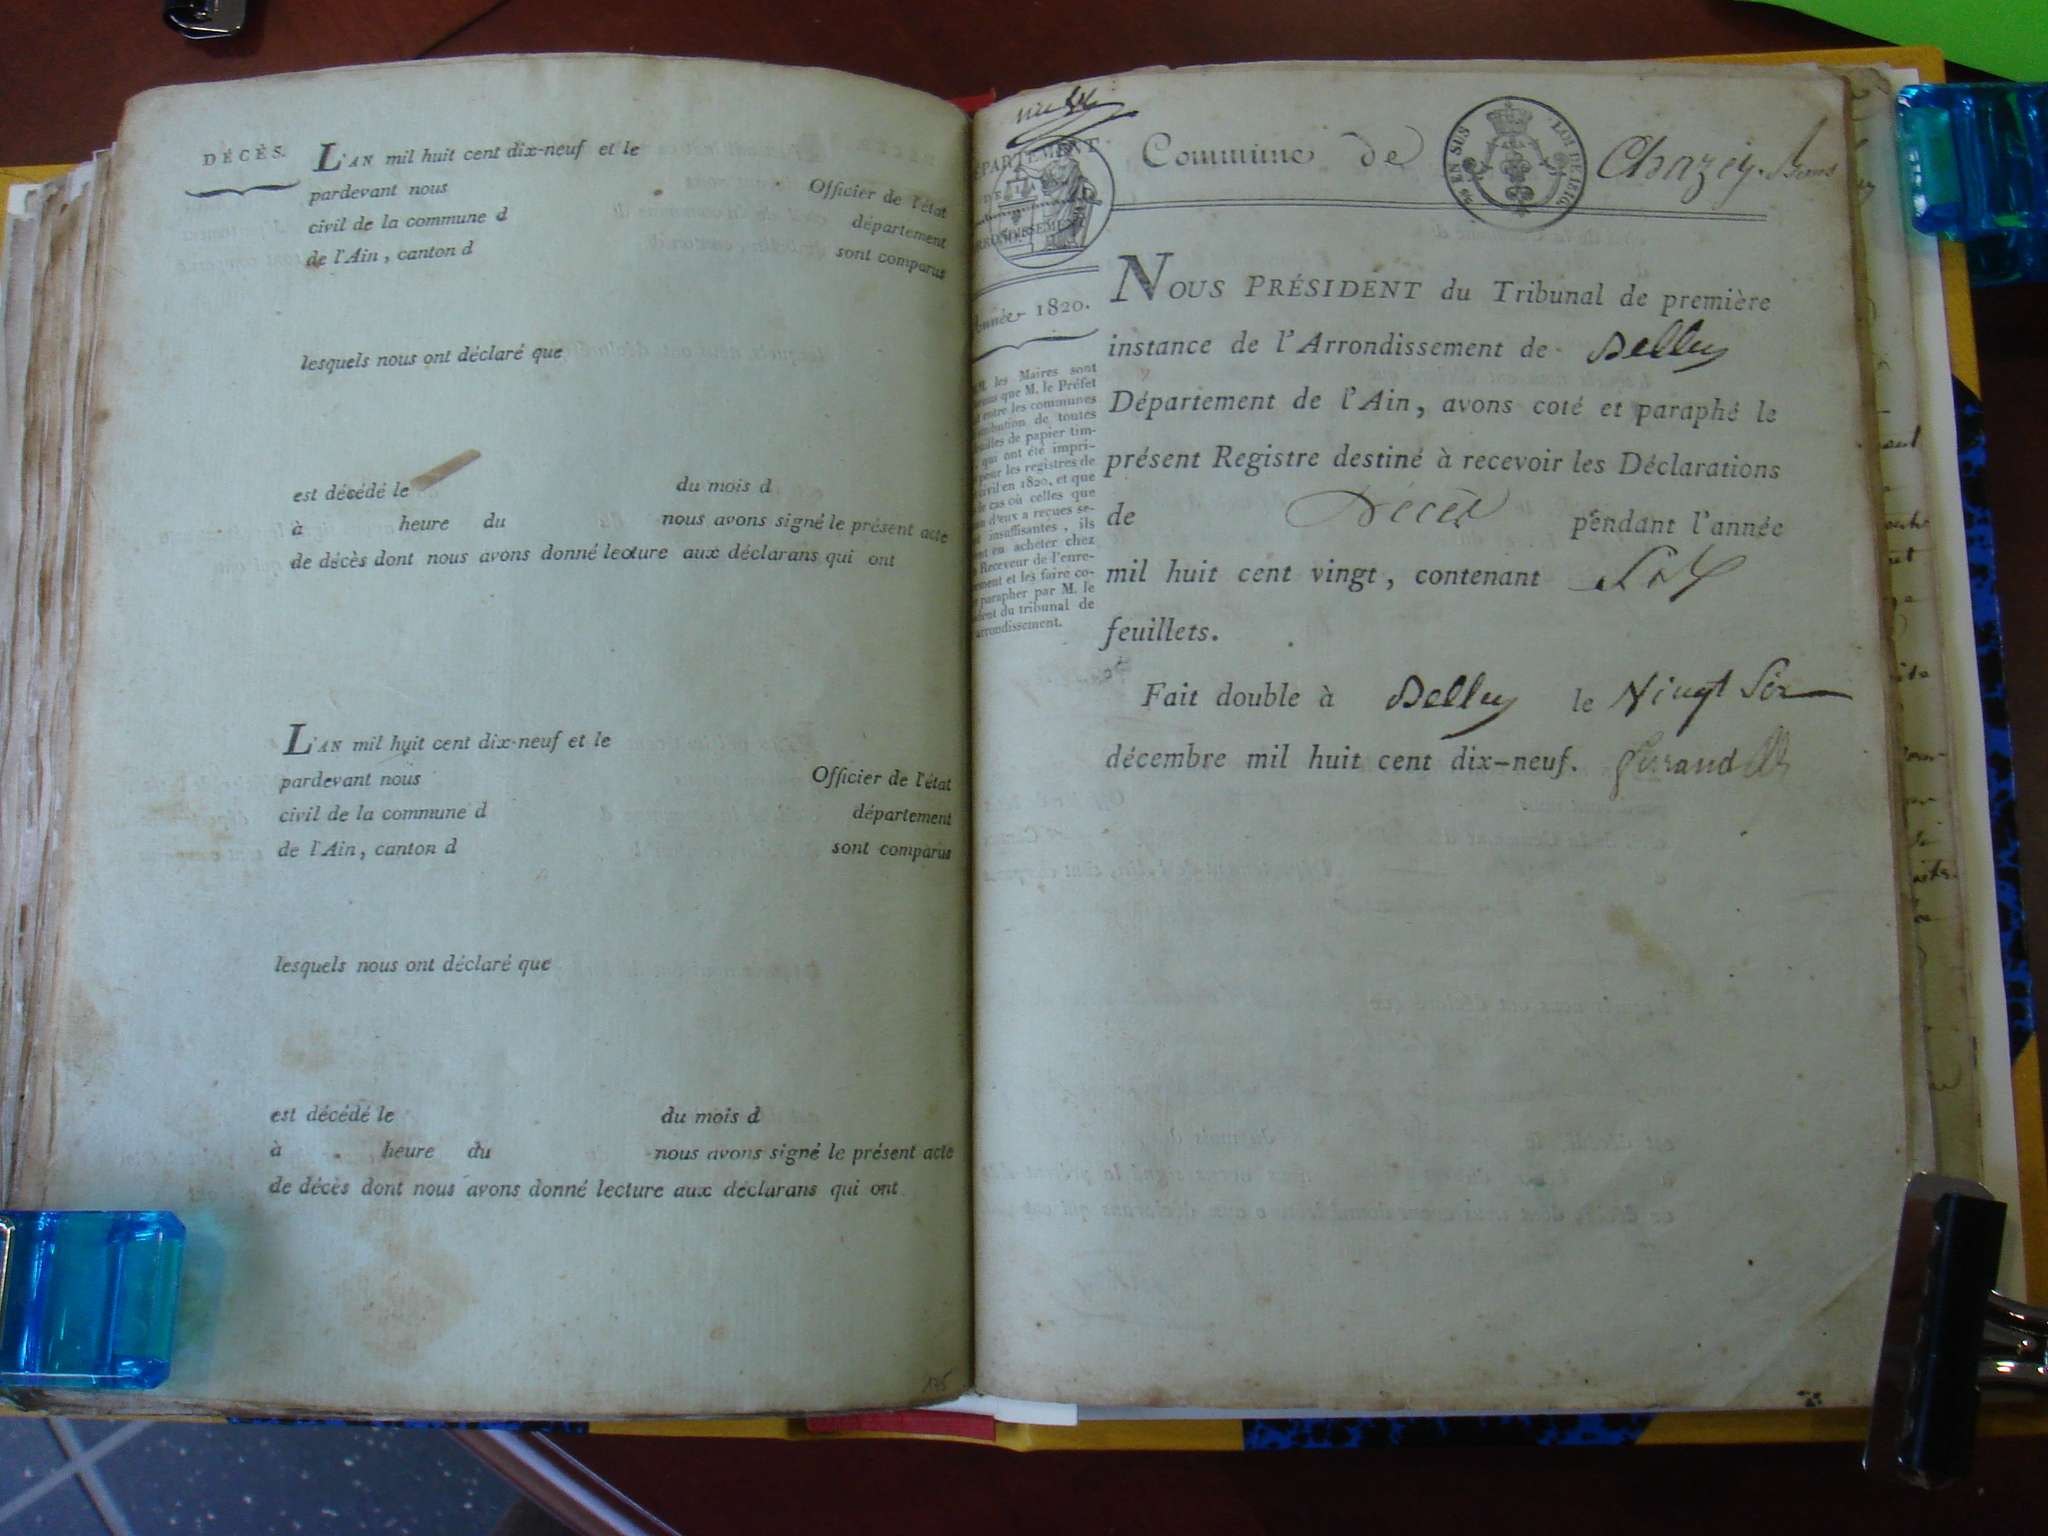 DÉCÈS.
L'AN mil huit cent dix-neuf et le
pardevant nous Officier de l'état
civil de la commune d département
de l'Ain, canton d sont comparus
lesquels nous ont déclaré que
est décédé le du mois d
à heure du nous avons signé le présent acte
de décès dont nous avons donné lecture aux déclarans qui ont
L'AN mil huit cent dix-neuf et le
pardevant nous Officier de l'état
civil de la commune d département
de l'Ain, canton d sont comparus
lesquels nous ont déclaré que
est décédé le du mois d
à heure du nous avons signé le présent acte
de décès dont nous avons donné lecture aux déclarans qui ont
Commune de Chazey-Bons
EN SUS LOI DE 1816
Année 1820.
les Maires sont
que M. le Préfet
entre les communes
de toutes
de papier tim-
qui ont été impri-
pour les registres de
civil en 1820, et que
le cas où celles que
d'eux a reçues se-
insuffisantes, ils
en acheter chez
Receveur de l'enre-
et les faire co-
parapher par M. le
du tribunal de
arrondissement.
NOUS PRÉSIDENT du Tribunal de première
instance de l'Arrondissement de Belley
Département de l'Ain, avons coté et paraphé le
présent Registre destiné à recevoir les Déclarations
de Décès pendant l'année
mil huit cent vingt, contenant Six
feuillets.
Fait double à Belley le Vingt Six
décembre mil huit cent dix-neuf.